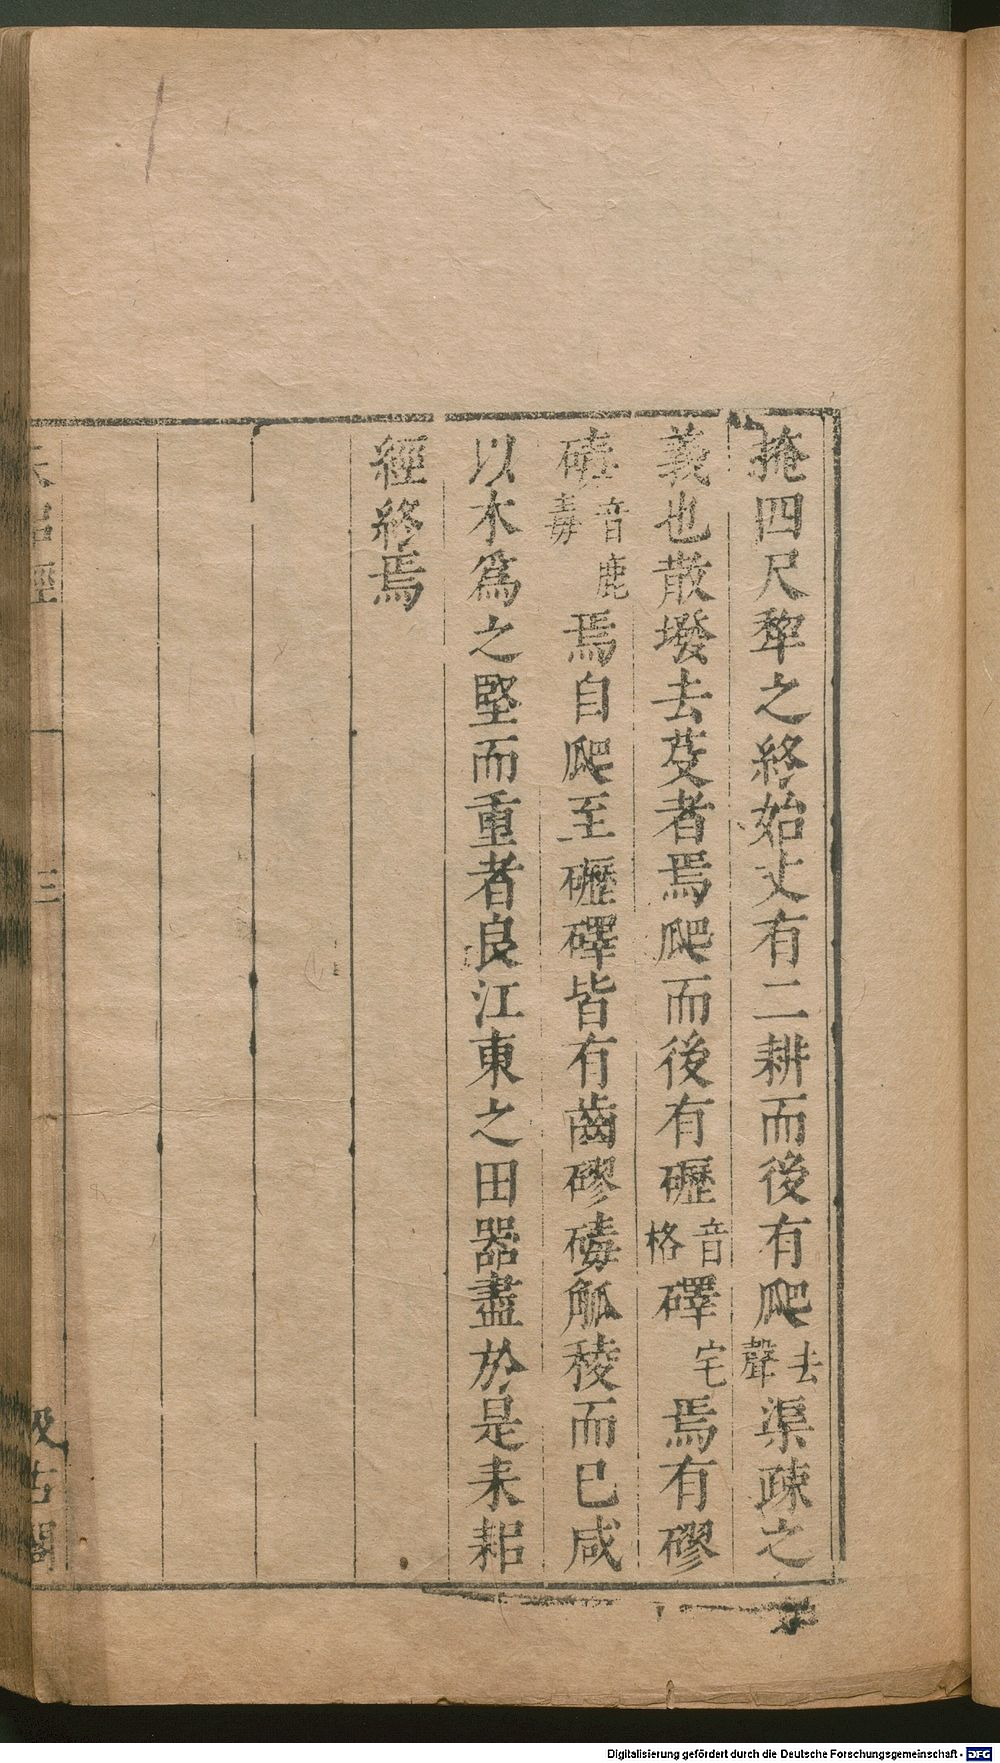 掩四尺犂之終始丈有二耕而後有爬去聲渠疎之
義也散墢去芟者焉爬而後有礰音格礋宅焉有磟
碡音鹿毒焉自爬至礰礋皆有齒磟碡觚稜而已咸
以木爲之堅而重者良江東之田器盡於是耒耜
經終焉
耒耜經
三
汲古閣
Digitalisierung gefördert durch die Deutsche Forschungsgemeinschaft - DFG